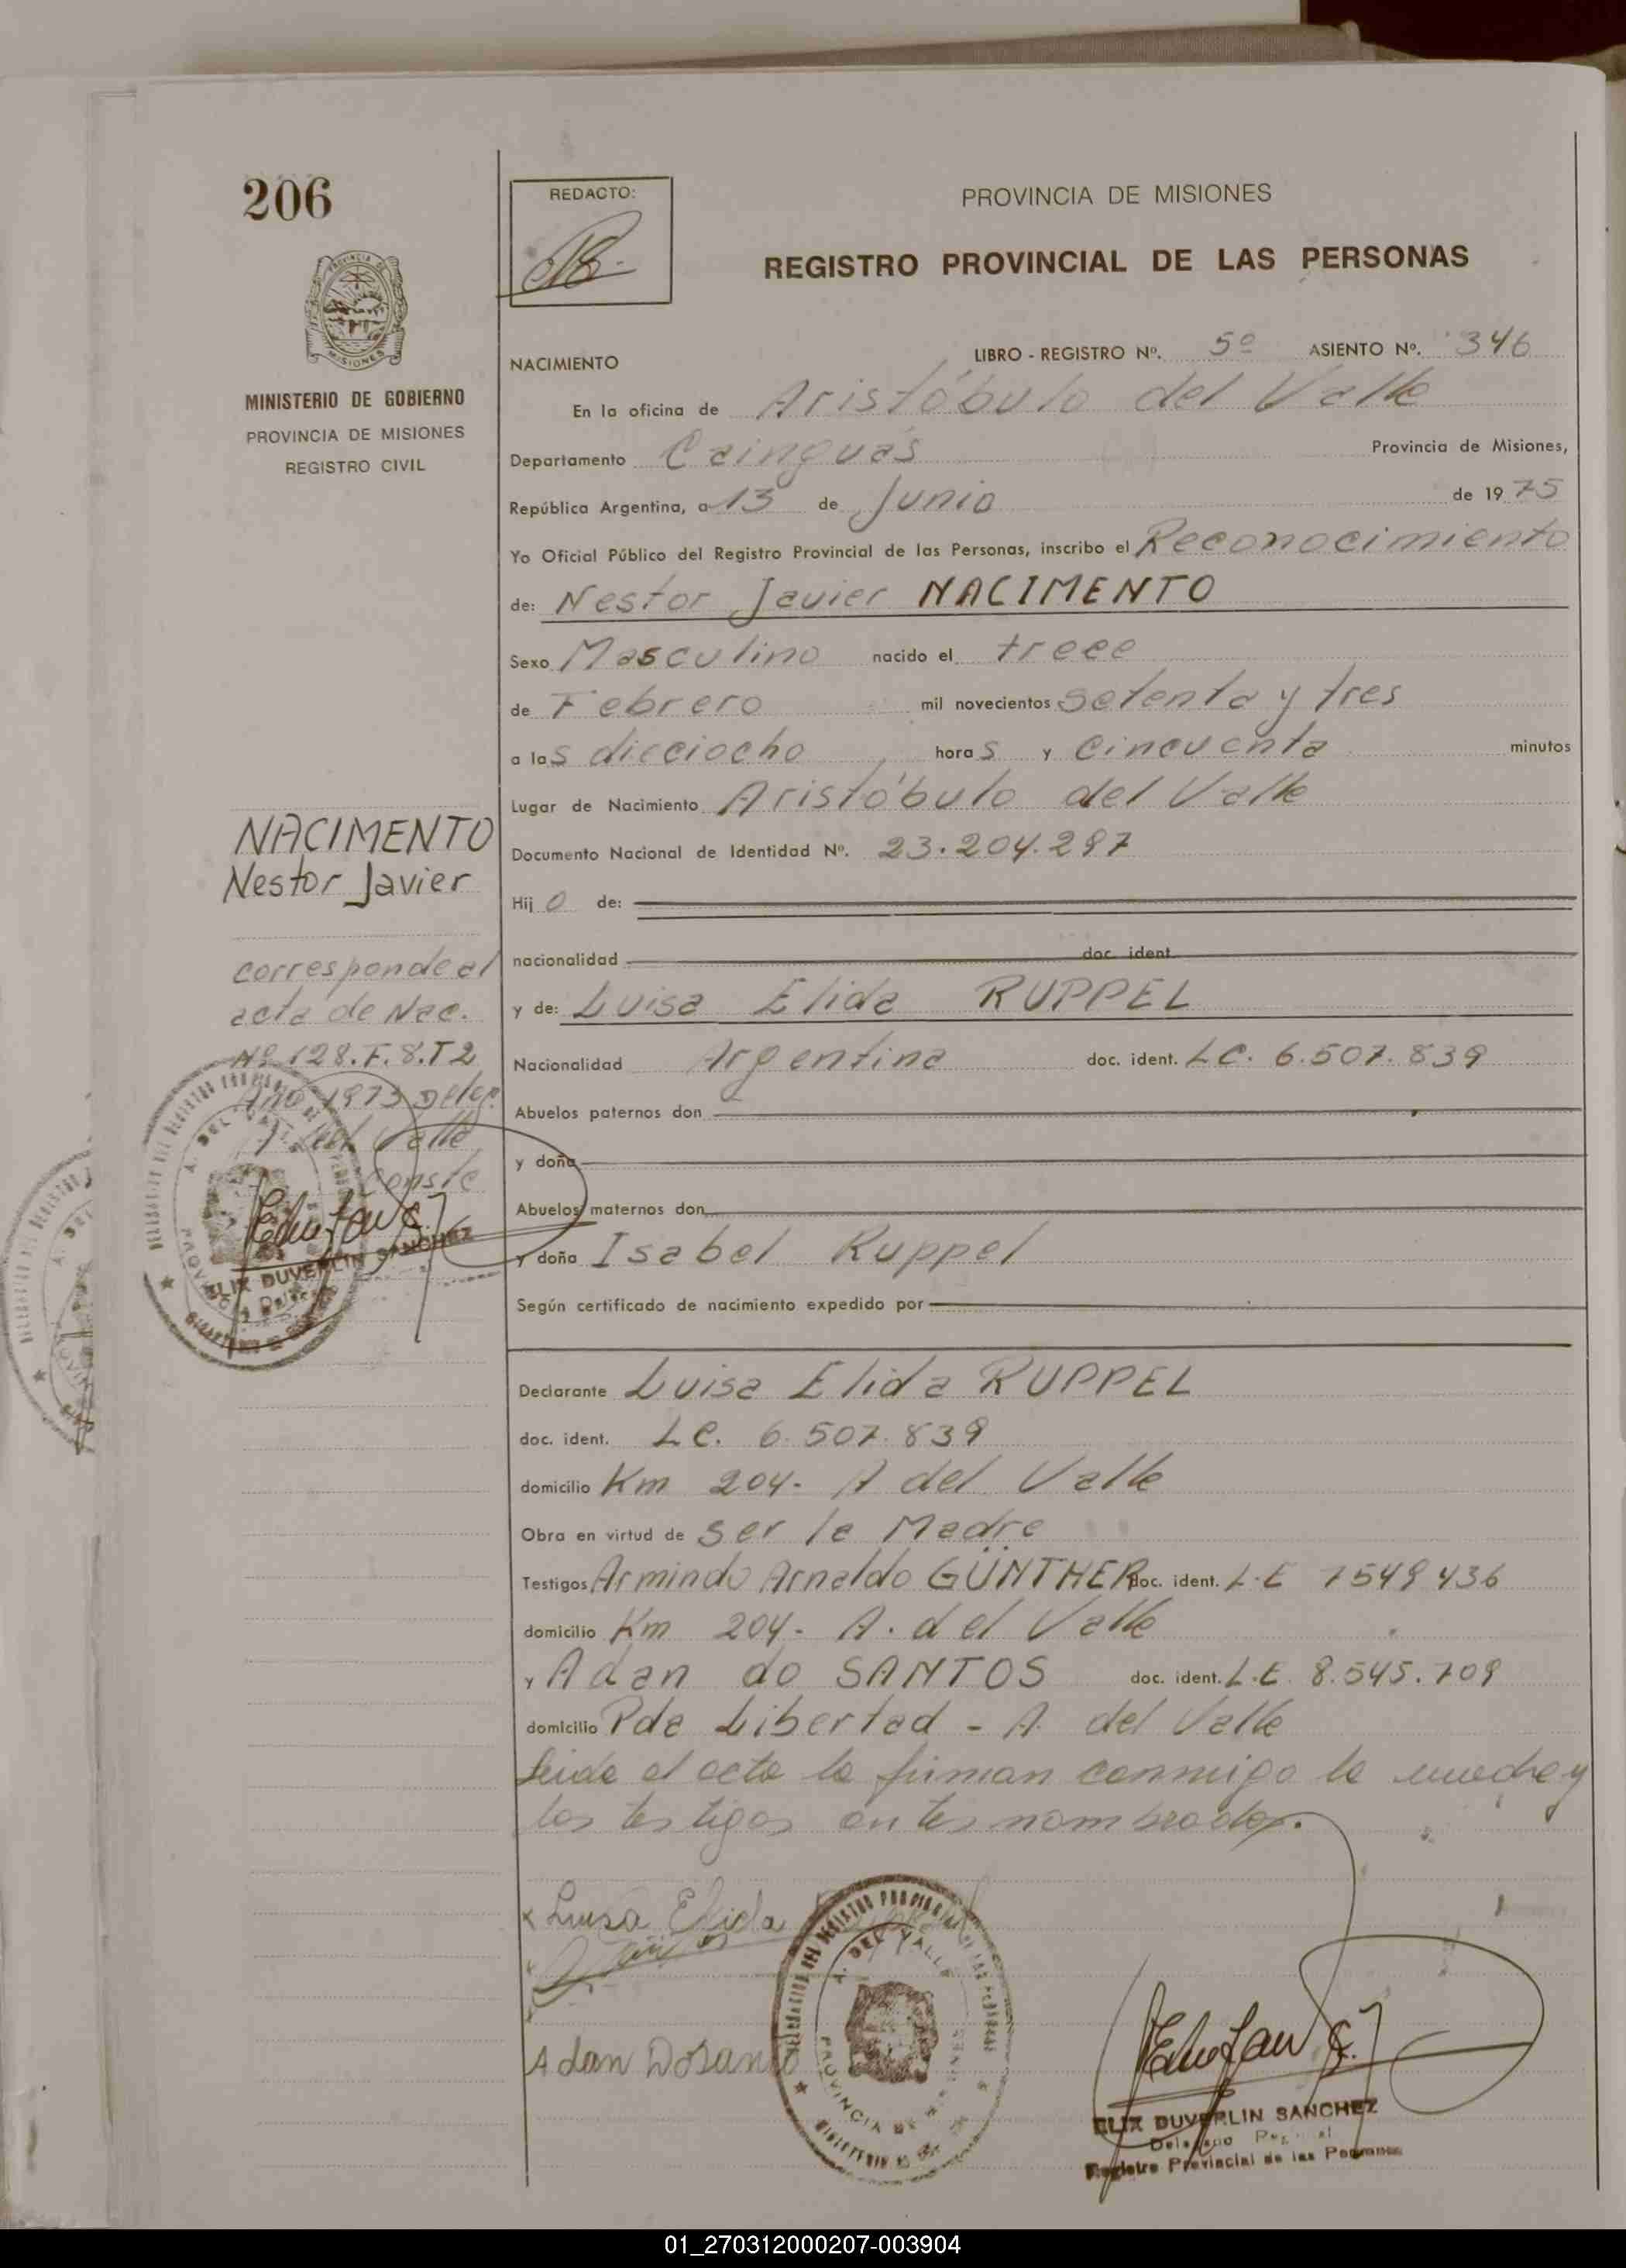 206
MINISTERIO DE GOBIERNO
PROVINCIA DE MISIONES
REGISTRO CIVIL
REDACTO:
PROVINCIA DE MISIONES
REGISTRO PROVINCIAL DE LAS PERSONAS
NACIMIENTO
LIBRO - REGISTRO Nº. 5º ASIENTO Nº. 346
En la oficina de Aristóbulo del Valle
Departamento Cainguás Provincia de Misiones,
República Argentina, a 13 de Junio de 1975
Yo Oficial Público del Registro Provincial de las Personas, inscribo el Reconocimiento
de: Nestor Javier NACIMENTO
Sexo Masculino nacido el trece
de Febrero mil novecientos setenta y tres
a las dieciocho horas y cincuenta minutos
Lugar de Nacimiento Aristóbulo del Valle
Documento Nacional de Identidad Nº. 23.204.297
Hijo de:
nacionalidad doc. ident.
y de: Luisa Elida RUPPEL
Nacionalidad Argentina doc. ident. LC. 6.507.839
Abuelos paternos don
y doña
Abuelos maternos don
y doña Isabel Ruppel
Según certificado de nacimiento expedido por
Declarante Luisa Elida RUPPEL
doc. ident. LC. 6.507.839
domicilio Km 204- A del Valle
Obra en virtud de ser la Madre
Testigos Armindo Arnaldo GÜNTHER doc. ident. L.E 7549436
domicilio Km 204- A. del Valle
y Adan do SANTOS doc. ident. L.E. 8.545.709
domicilio Pda Libertad - A. del Valle
Leida el acta la firman conmigo la madre y
los testigos antes nombrados.
Luisa Elida
Adan Dosanto
ELIX DUVERLIN SANCHEZ
Registro Provincial de las Personas
NACIMENTO
Nestor Javier
corresponde al
acta de Nac.
Nº 128.F.8.T2
Año 1973 Deleg.
del Valle
Conste
ELIX DUVERLIN SANCHEZ
01_270312000207-003904